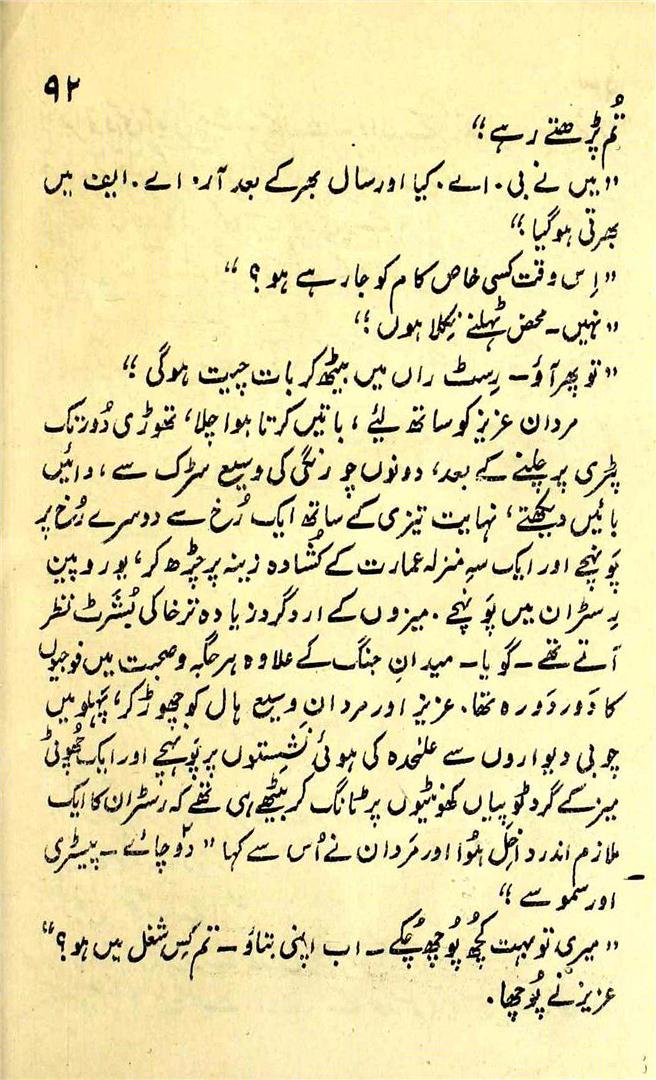 ۹۲
تُم پڑھتے رہے؛“
”میں نے بی. اے. کیا اور سال بھر کے بعد آر. اے. ایف میں
بھرتی ہوگیا؛“
”اِس وقت کسی خاص کام کو جارہے ہو؟“
”نہیں۔ محض ٹہلنے نِکلا ہوں؛“
”تو پھر آؤ۔ رِسٹ راں میں بیٹھ کر بات چیت ہوگی؛“
مردان عزیز کو ساتھ لیئے، باتیں کرتا ہوا چلا، تھوڑی دُور تک
پٹری پر چلنے کے بعد، دونوں چورنگی کی وسیع سڑک سے، دائیں
بائیں دیکھتے، نہایت تیزی کے ساتھ ایک رُخ سے دوسرے رُخ پر
پَونہچے اور ایک سہ منزلہ عمارت کے کُشادہ زینہ پر چڑھ کر، یوروپین
رِسٹران میں پَونہچے. میزوں کے اردگرد زیادہ تر خاکی بُشَرٹ نظر
آتے تھے۔ گویا۔ میدانِ جنگ کے علاوہ ہر جگہ و صحبت میں فوجیوں
کا دَور دَورہ تھا. عزیز اور مردان وسیع ہال کو چھوڑ کر، پَہلو میں
چوبی دیواروں سے علٰحدہ کی ہوئی نَشِستوں پر پَونہچے اور ایک چھوٹی
میز کے گرد ٹوپیاں کھونٹیوں پر ٹانگ کر بیٹھے ہی تھے کہ رسٹران کا ایک
ملازم اندر داخِل ہُوا اور مَردان نے اُس سے کہا ”دو۲ چائے۔ پیسٹری
اور سموسے؛“
”میری تو بہت کُچھ پُوچھ چُکے۔ اب اپنی بتاؤ۔ تم کِس شغل میں ہو؟“
عزیز نے پُوچھا.